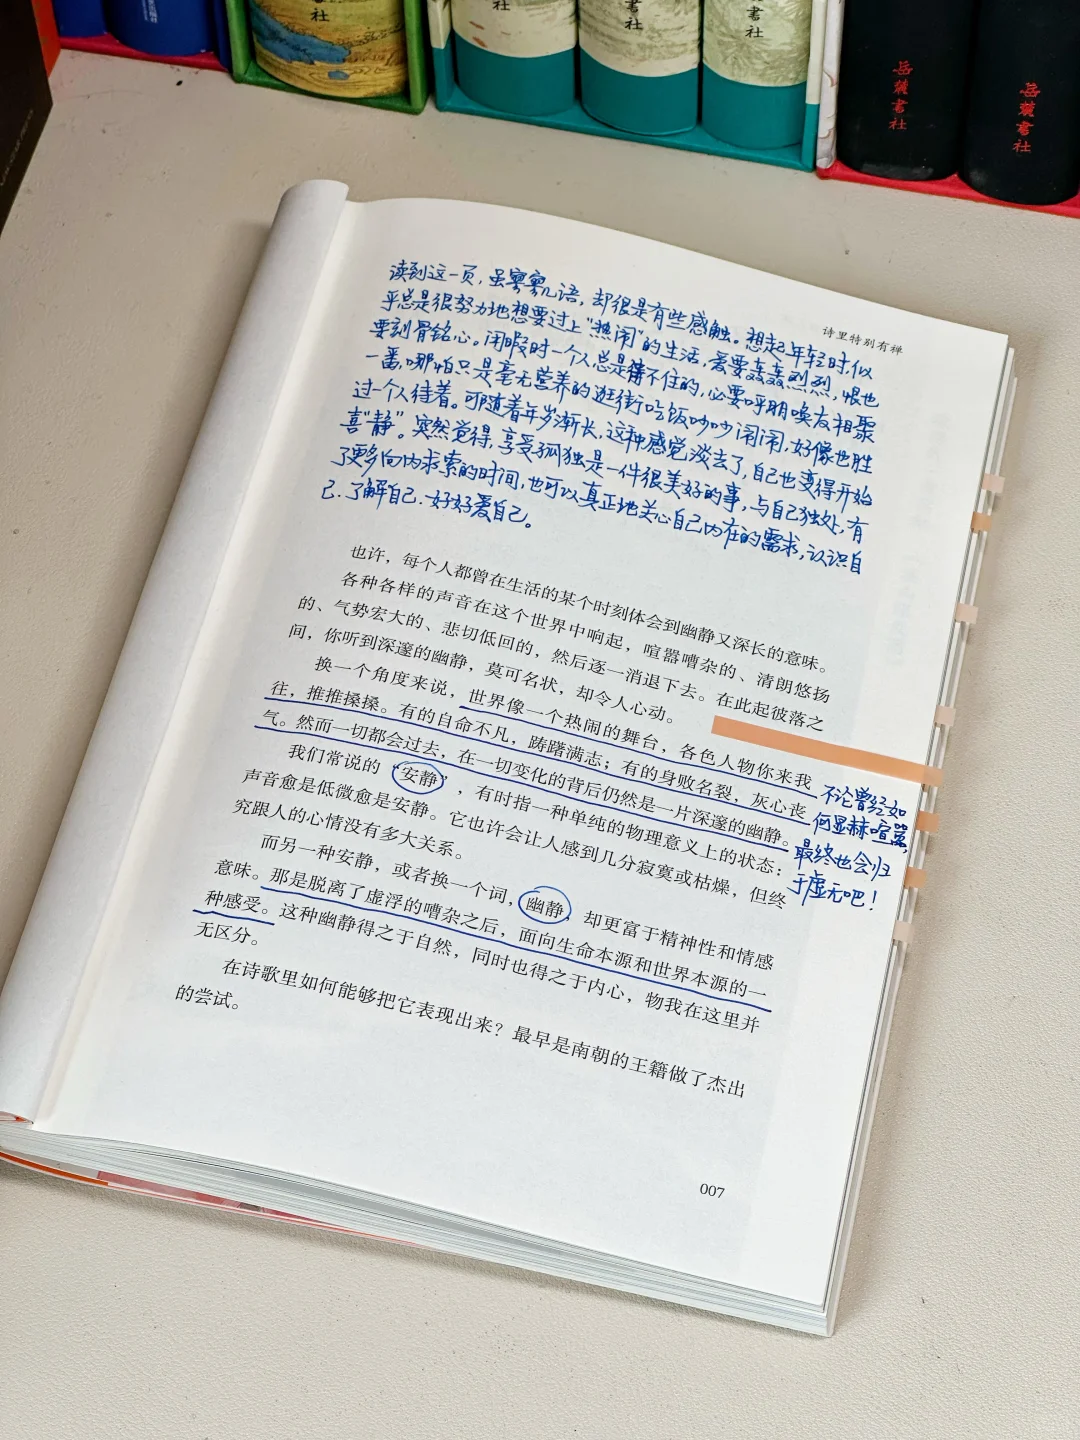 書社
書社
書社
書社
岳麓書社
岳麓書社
诗里特别有禅
读到这一页，虽寥寥几语，却很是有些感触。想起年轻时，似
乎总是很努力地想要过上“热闹”的生活，爱要轰轰烈烈，恨也
要刻骨铭心。闲暇时一个人总是待不住的，必要呼朋唤友相聚
一番，哪怕只是毫无营养的逛街吃饭吵吵闹闹，好像也胜
过一个人待着。可随着年岁渐长，这种感觉淡去了，自己也变得开始
喜“静”。突然觉得，享受孤独是一件很美好的事，与自己独处，有
了更多向内求索的时间，也可以真正地关心自己内在的需求，认识自
己．了解自己．好好爱自己。
也许，每个人都曾在生活的某个时刻体会到幽静又深长的意味。
各种各样的声音在这个世界中响起，喧嚣嘈杂的、清朗悠扬
的、气势宏大的、悲切低回的，然后逐一消退下去。在此起彼落之
间，你听到深邃的幽静，莫可名状，却令人心动。
换一个角度来说，世界像一个热闹的舞台，各色人物你来我
往，推推搡搡。有的自命不凡，踌躇满志；有的身败名裂，灰心丧
气。然而一切都会过去，在一切变化的背后仍然是一片深邃的幽静。
不论曾经如
何显赫喧嚣，
最终也会归
于虚无吧！
我们常说的“安静”，有时指一种单纯的物理意义上的状态：
声音愈是低微愈是安静。它也许会让人感到几分寂寞或枯燥，但终
究跟人的心情没有多大关系。
而另一种安静，或者换一个词，幽静，却更富于精神性和情感
意味。那是脱离了虚浮的嘈杂之后，面向生命本源和世界本源的一
种感受。这种幽静得之于自然，同时也得之于内心，物我在这里并
无区分。
在诗歌里如何能够把它表现出来？最早是南朝的王籍做了杰出
的尝试。
007